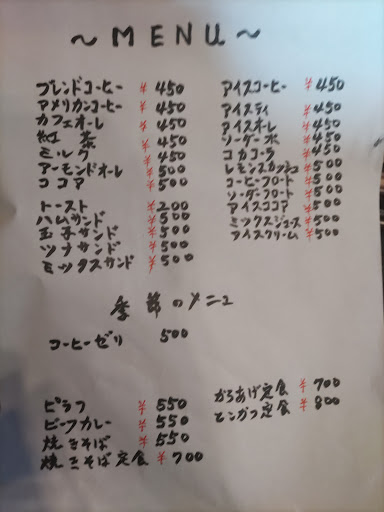 ～MENU～
ブレンドコーヒー ¥450
アメリカンコーヒー ¥450
カフェオーレ ¥450
紅茶 ¥450
ミルク ¥450
アーモンドオーレ ¥500
ココア ¥500
トースト ¥200
ハムサンド ¥500
玉子サンド ¥500
ツナサンド ¥500
ミックスサンド ¥500
アイスコーヒー ¥450
アイスティ ¥450
アイスオーレ ¥450
ソーダー水 ¥450
コカコーラ ¥450
レモンスカッシュ ¥500
コーヒーフロート ¥500
ソーダーフロート ¥500
アイスココア ¥500
ミックスジュース ¥500
アイスクリーム ¥500
季節のメニュ
コーヒーゼリ 500
ピラフ ¥550
ビーフカレー ¥550
焼きそば ¥550
焼きそば定食 ¥700
からあげ定食 ¥700
とんかつ定食 ¥800